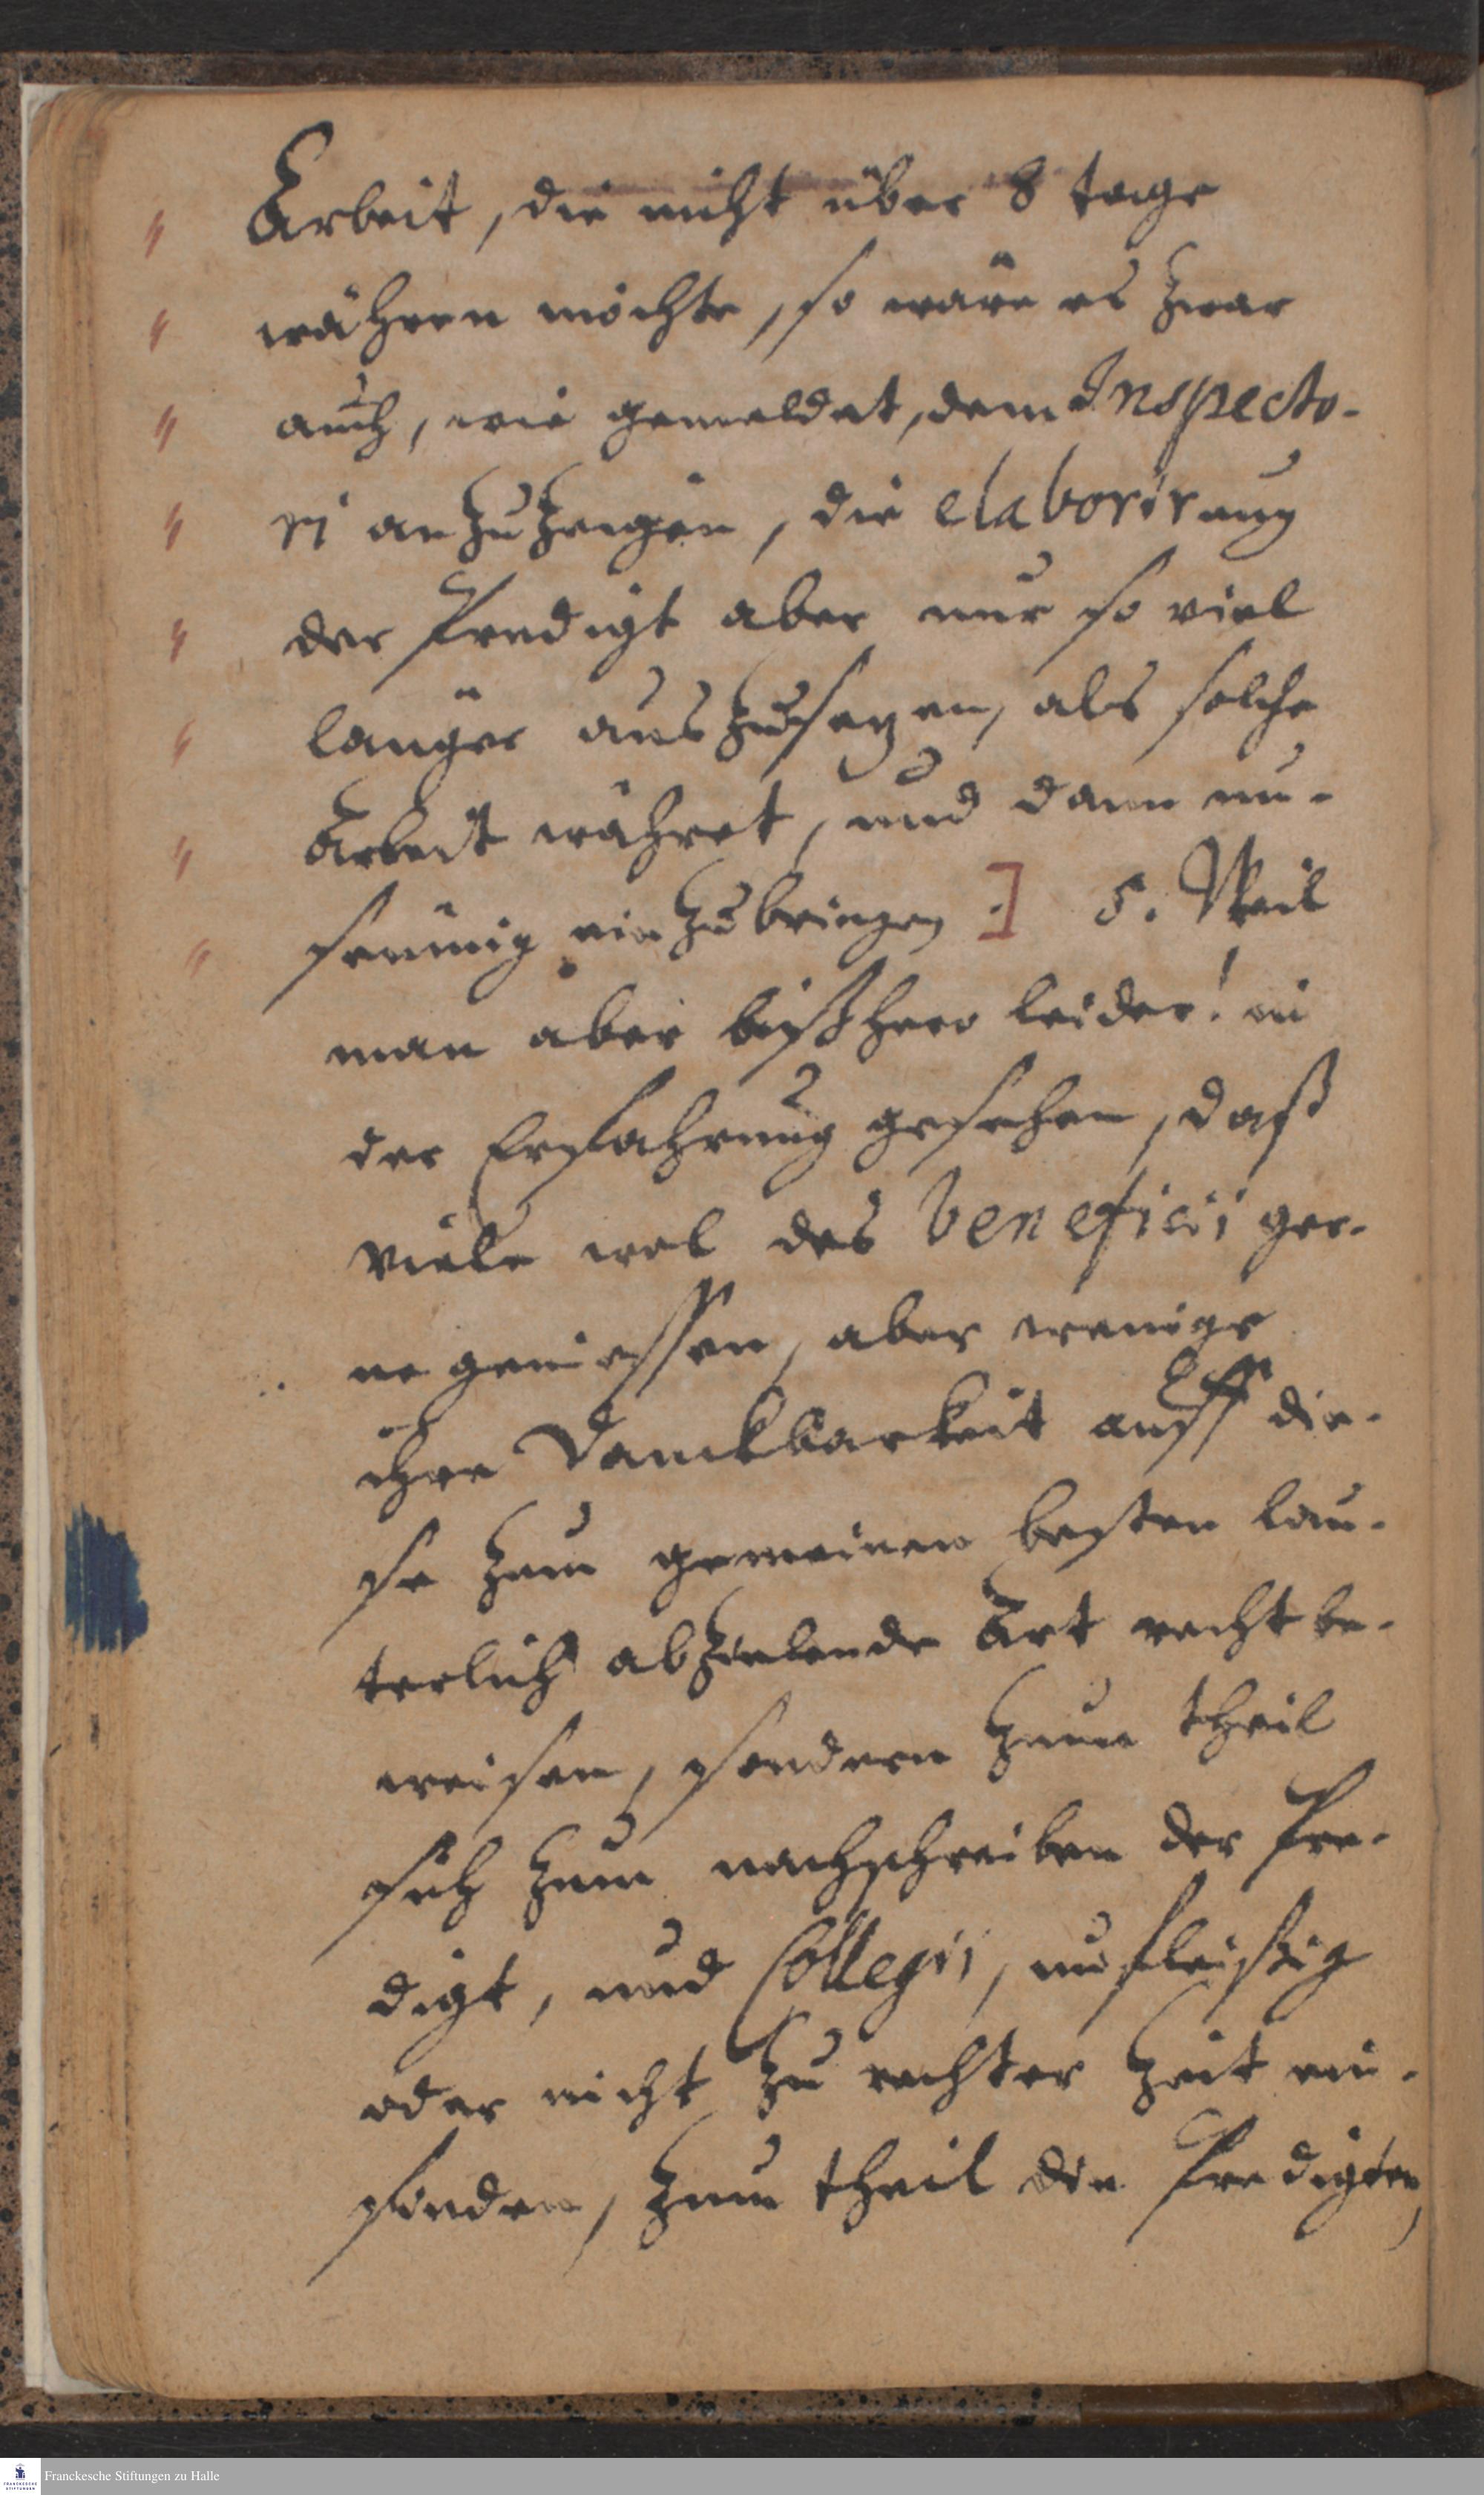 Arbeit, die nicht über 8 tage
währen möchte, so wäre es zwar
auch, wie gemeldet, dem Inspecto-
ri anzuzeigen, die elaborirung
der Predigt aber nur so viel
länger auszusetzen, als solche
Arbeit währet, und dann un-
säumig einzubringen ] 5. Weil
man aber bißhero leider! in
der Erfahrung gesehen, daß
viele wol des beneficii ger-
ne geniessen, aber wenige
ihre Danckbarkeit auff die-
se zum gemeinen besten lau-
terlich abzielende Art recht be-
weisen, sondern zum theil
sich zum nachschreiben der Pre-
digt, und Collegii, unfleißig
oder nicht zu rechter Zeit ein-
finden, zum theil die Predigten,
Franckesche Stiftungen zu Halle